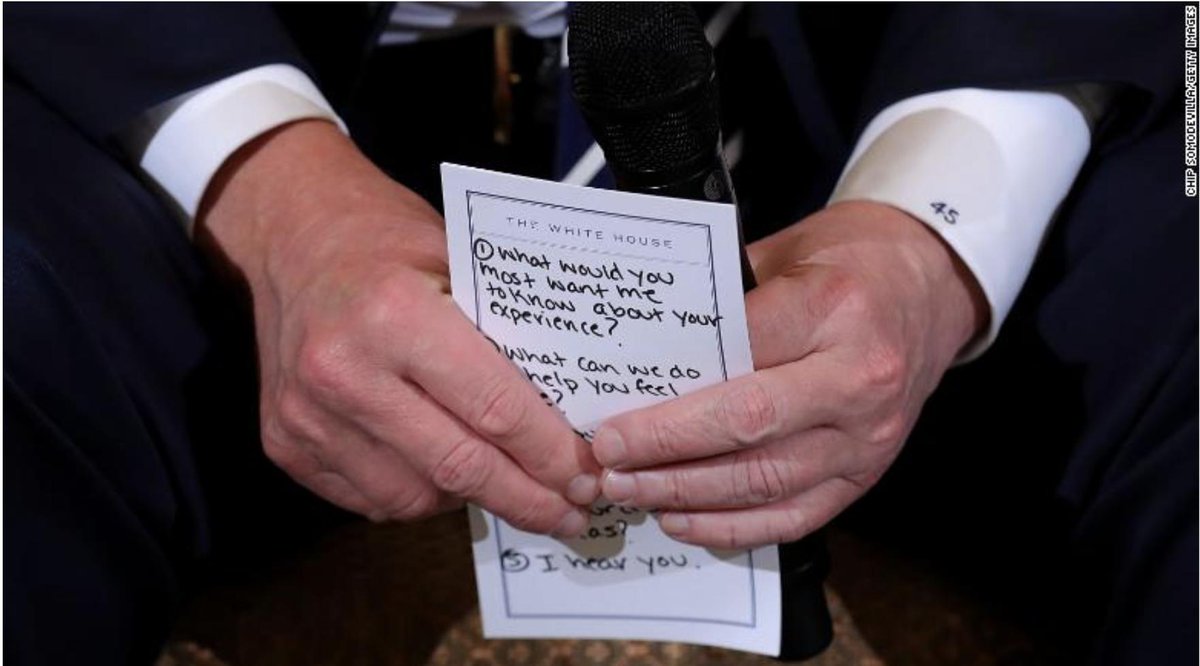 THE WHITE HOUSE
① What would you
most want me
to know about your
experience?
What can we do
help you feel
5 I hear you.
45
CHIP SOMODEVILLA/GETTY IMAGES